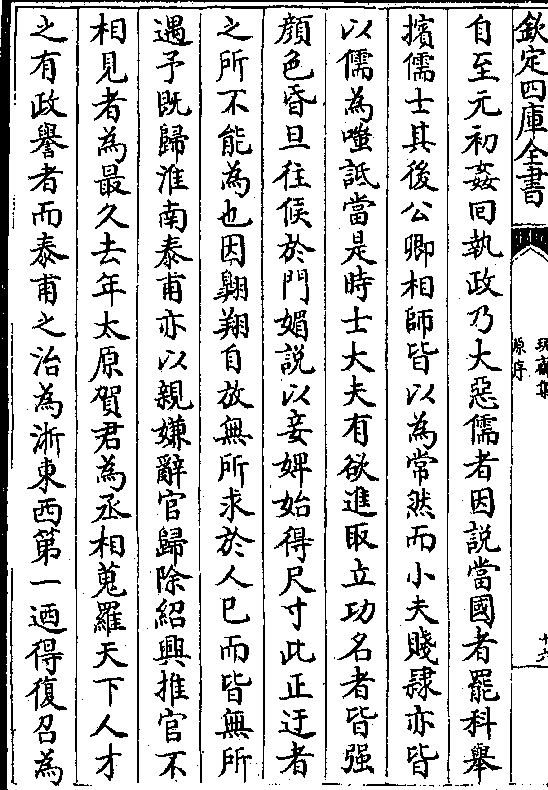 欽定四庫全書
玩齋集
原序
十六
自至元初姦回執政乃大惡儒者因說當國者罷科舉
擯儒士其後公卿相師皆以為常然而小夫賤隷亦皆
以儒為嗤詆當是時士大夫有欲進取立功名者皆强
顔色昏旦往候於門媚說以妾婢始得尺寸此正迂者
之所不能為也因翺翔自放無所求於人已而皆無所
遇予既歸淮南泰甫亦以親嫌辭官歸除紹興推官不
相見者為最久去年太原賀君為丞相蒐羅天下人才
之有政譽者而泰甫之治為浙東西第一迺得復召為